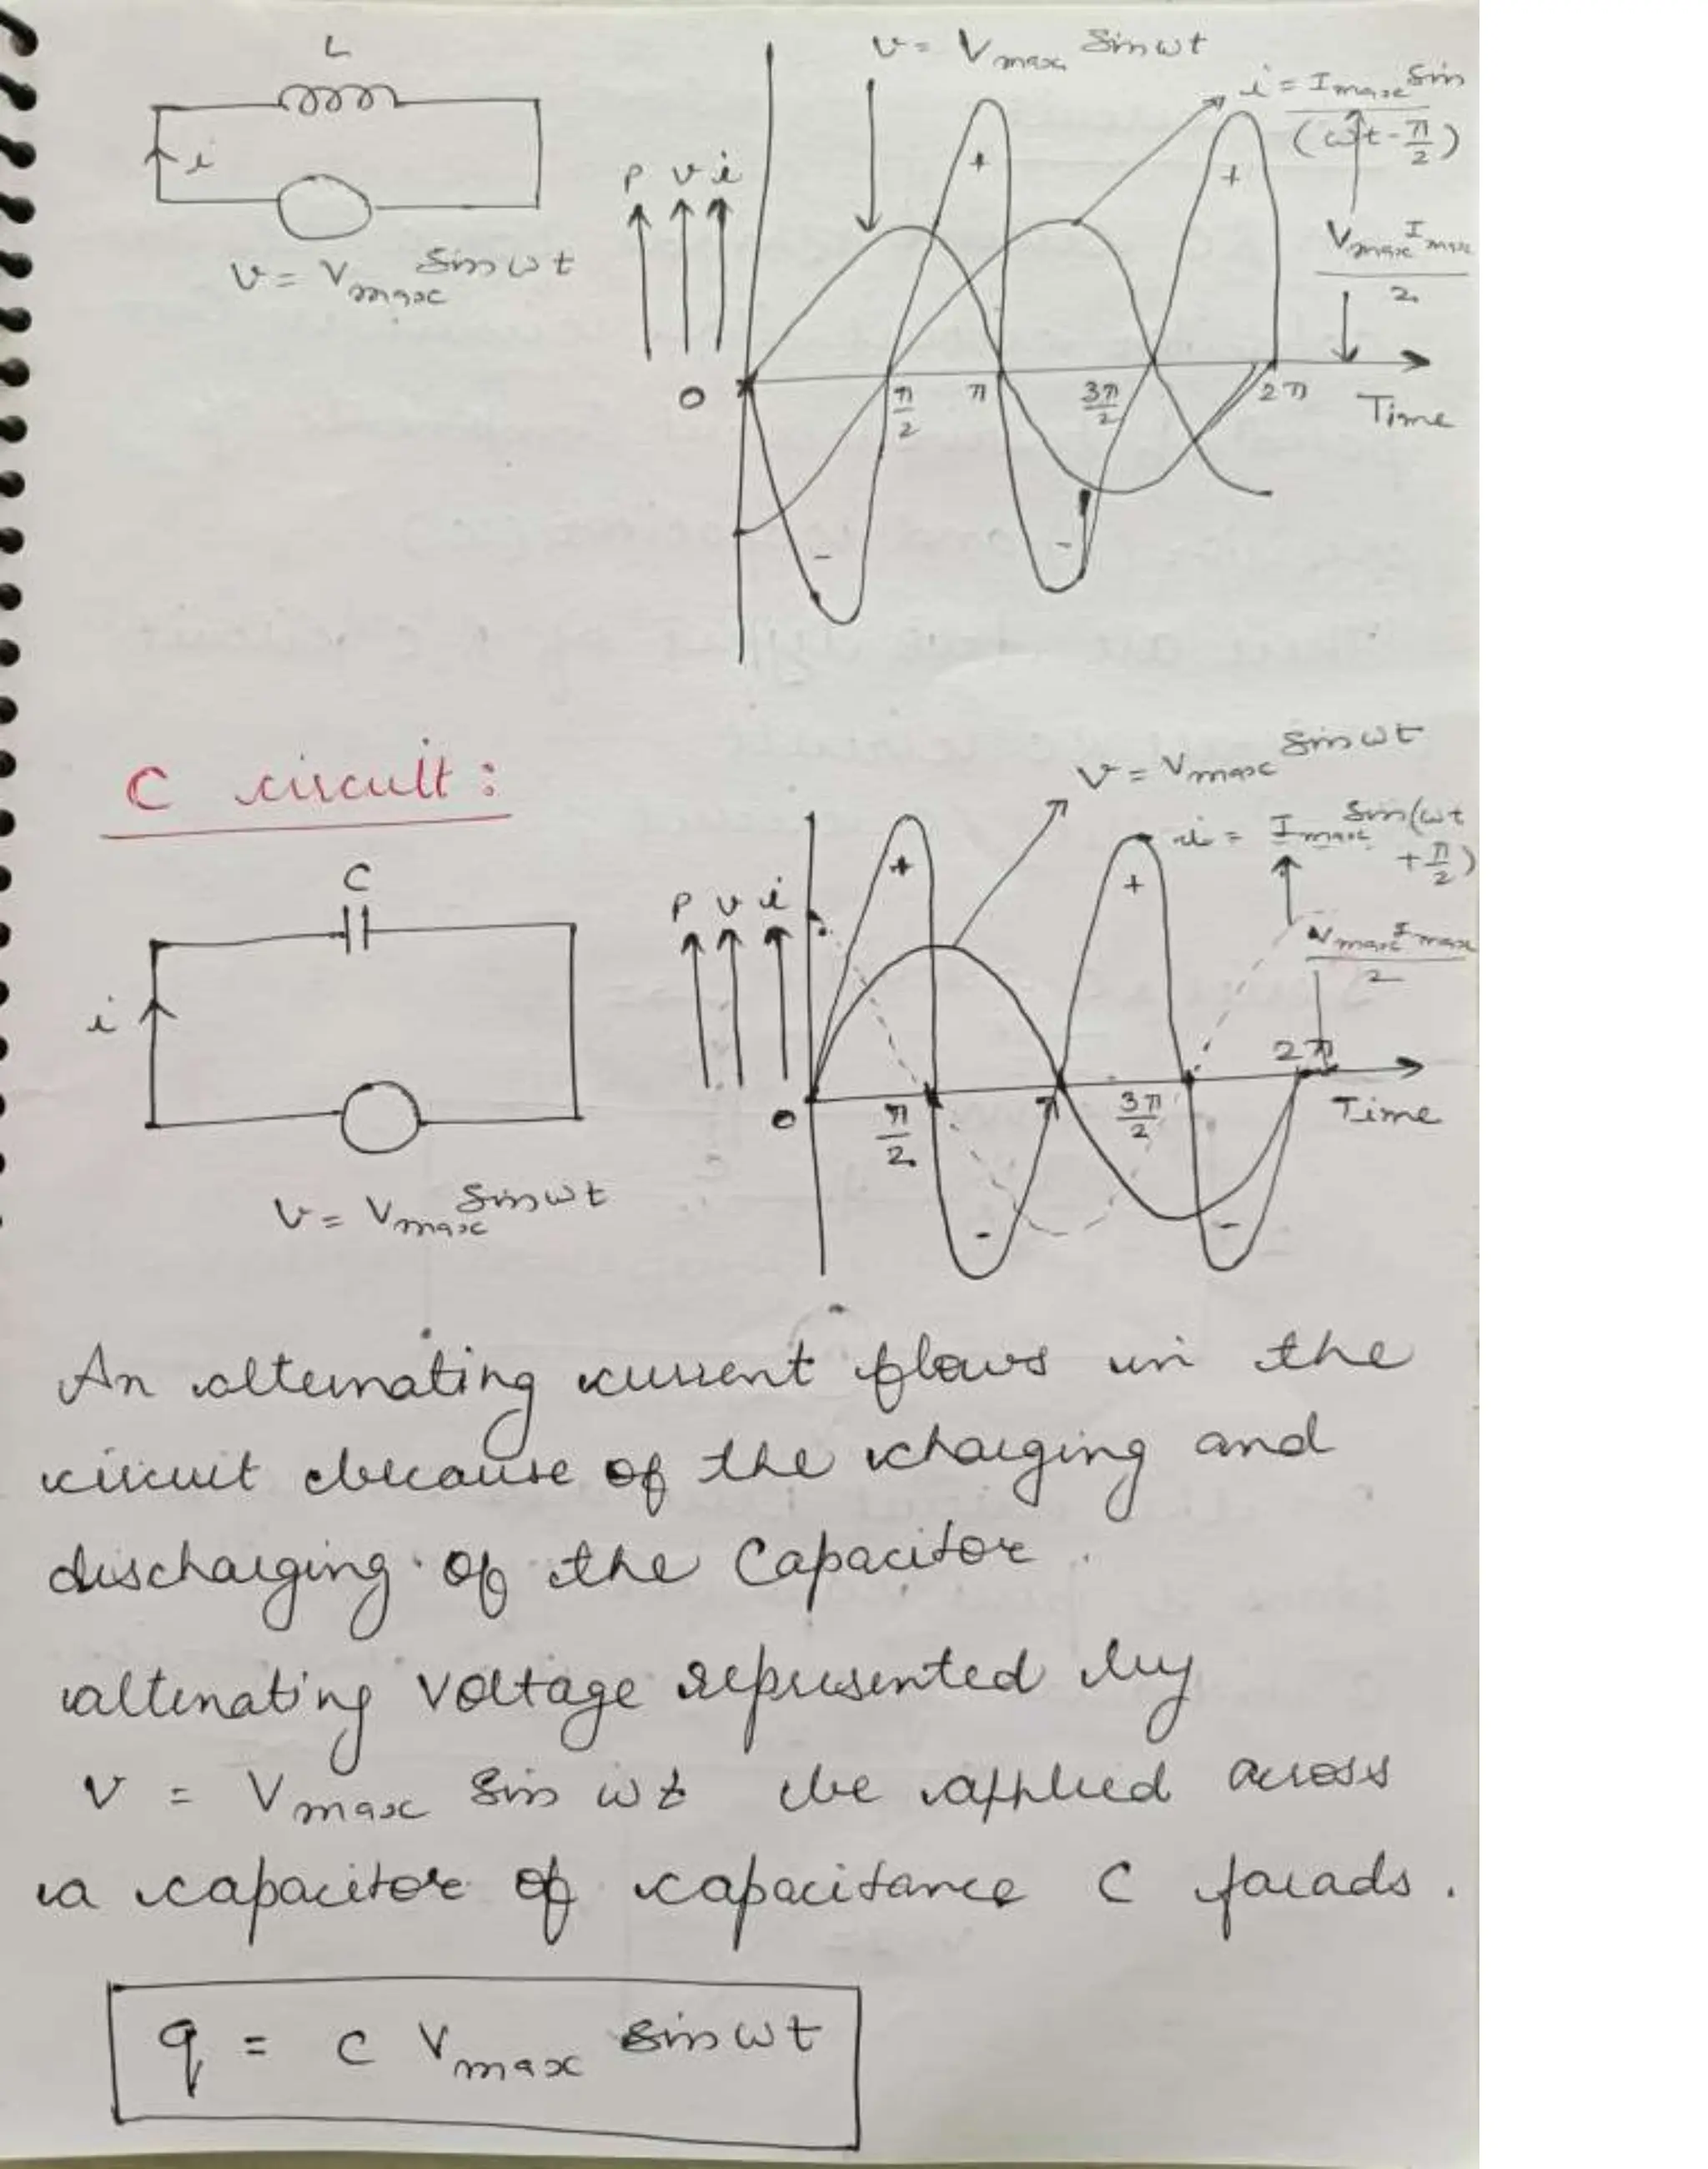 L
i
v = Vmax sin ωt
v = Vmax sin ωt
i = Imax sin
(ωt - π/2)
P v i
+
+
Vmax Imax
2
O
π/2
π
3π/2
2π
Time
-
-
C circuit:
C
i
v = Vmax sin ωt
v = Vmax sin ωt
i = Imax sin(ωt
+ π/2)
P v i
+
+
Vmax Imax
2
O
π/2
π
3π/2
2π
Time
-
-
An alternating current flows in the
circuit because of the charging and
discharging of the Capacitor.
altenating voltage represented by
v = Vmax sin ωt be applied across
a capacitor of capacitance C farads.
q = C Vmax sin ωt